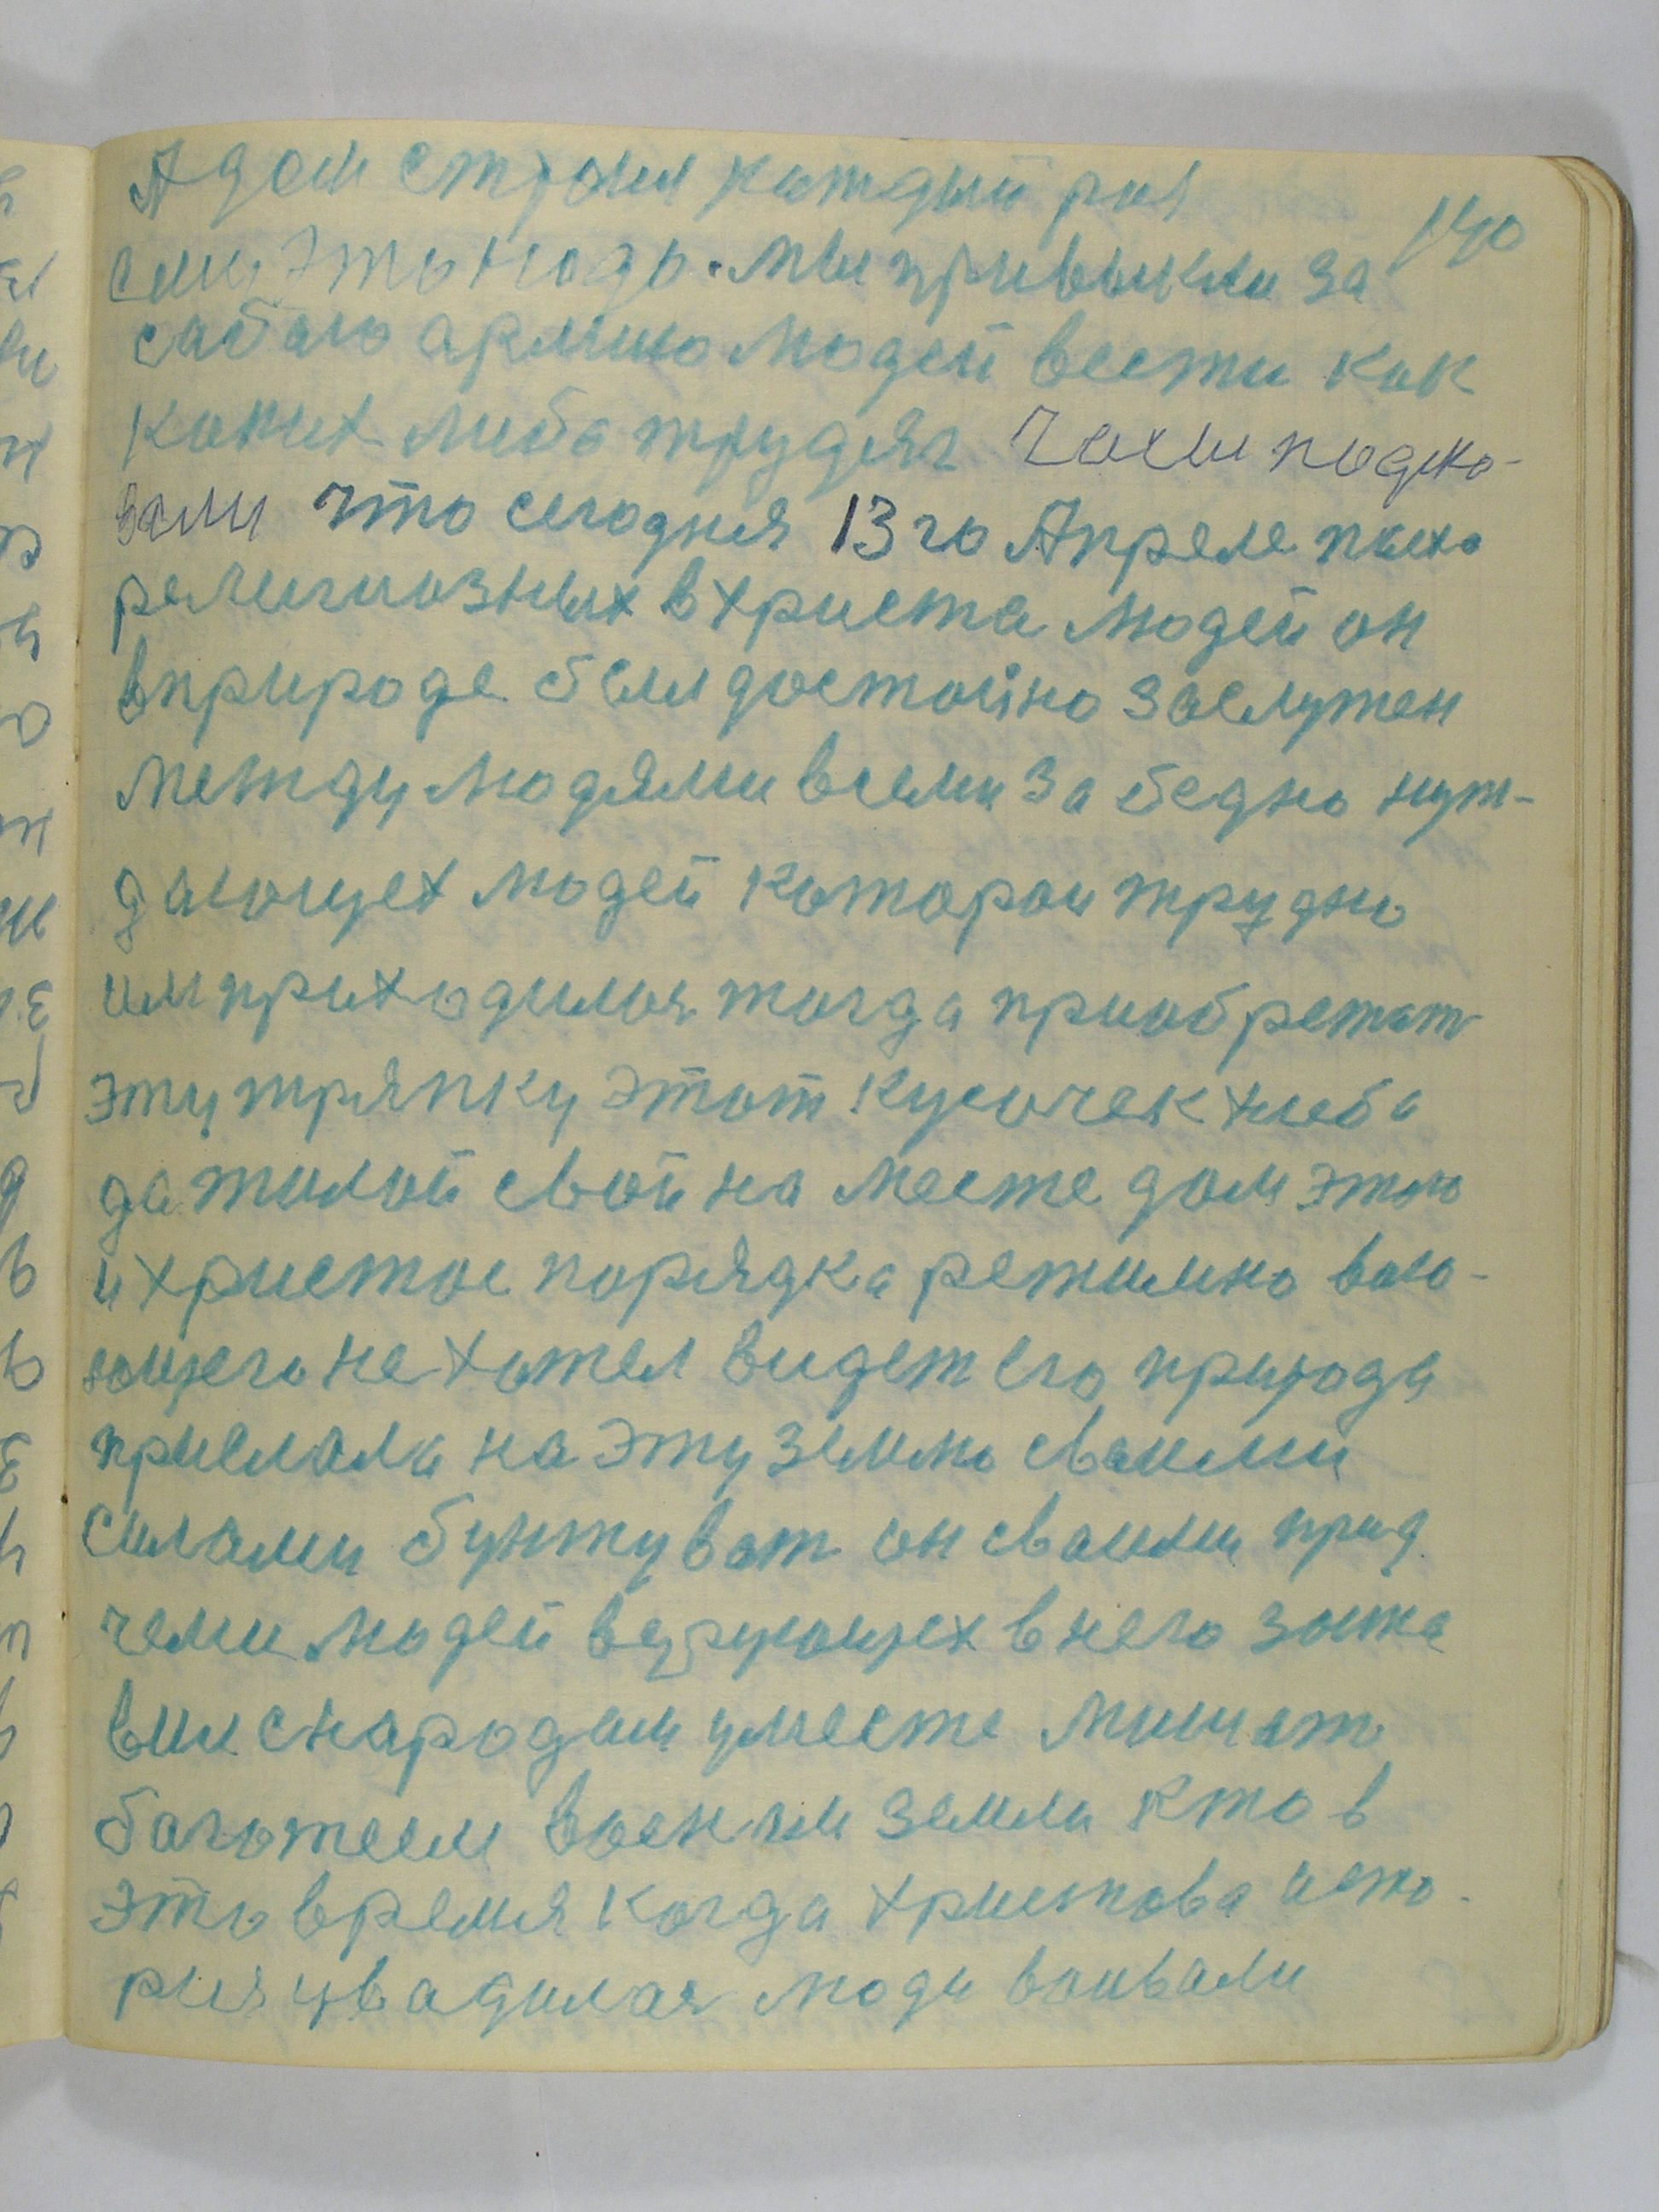 А дом строил каждый рая
140
сму это надо. мы привыкли за
сабаю армию людей вести как
каких либо трудяг Часы подска-
зали что сегодня 13 го Апреле пысхо
религиозных в христа людей он
вприроде был достойно заслужен
между людями всеми за бедно нуж-
дающех людей котораи трудно
им приходилоя тагда приобретат
эту тряпку этот кусочек хлеба
да жилой свой на месте дом этаю
и христос порядка режимно ваю-
ющего не хател видет его природа
прислала на эту землю сваими
силами бунтуват он сваими прид
чеми людей верующех в него зажа
вши снародам уместе
багатеем военым земли кто в
это время когда христова исто-
рия увадилая люди воивали